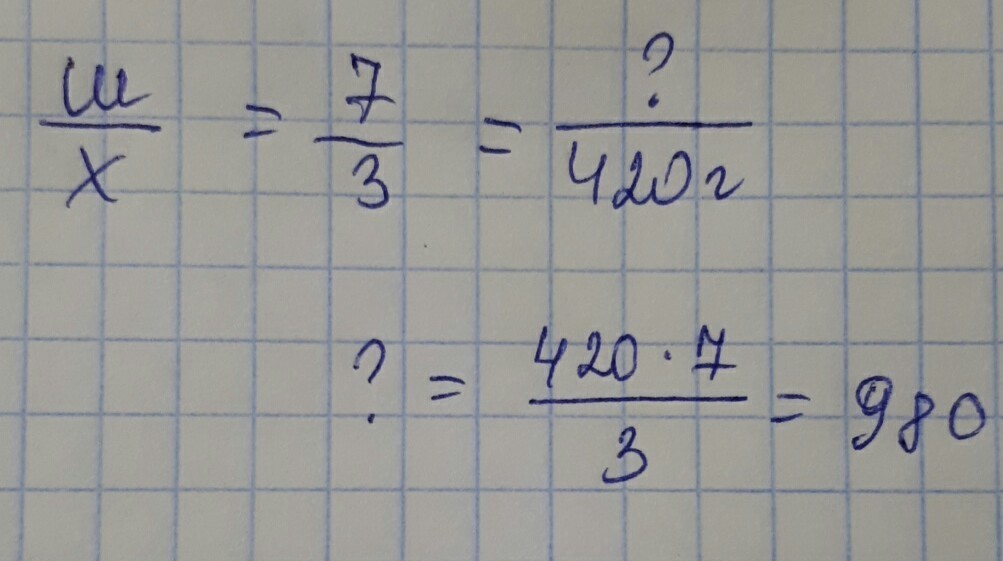 ш/х = 7/3 = ?/420г
? = 420 · 7/3 = 980